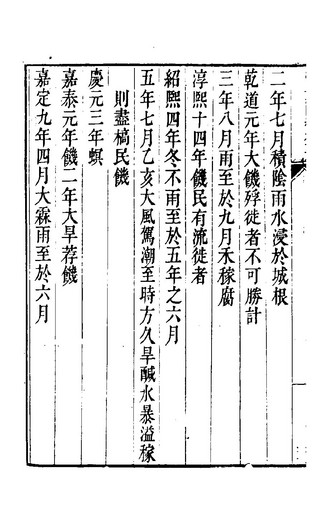 二年七月積陰雨水浸於城根
乾道元年大饑殍徙者不可勝計
三年八月雨至於九月禾稼腐
淳熙十四年饑民有流徙者
紹熙四年冬不雨至於五年之六月
五年七月乙亥大風駕潮至時方久旱鹹水暴溢稼
則盡槁民饑
慶元三年螟
嘉泰元年饑二年大旱荐饑
嘉定九年四月大霖雨至於六月